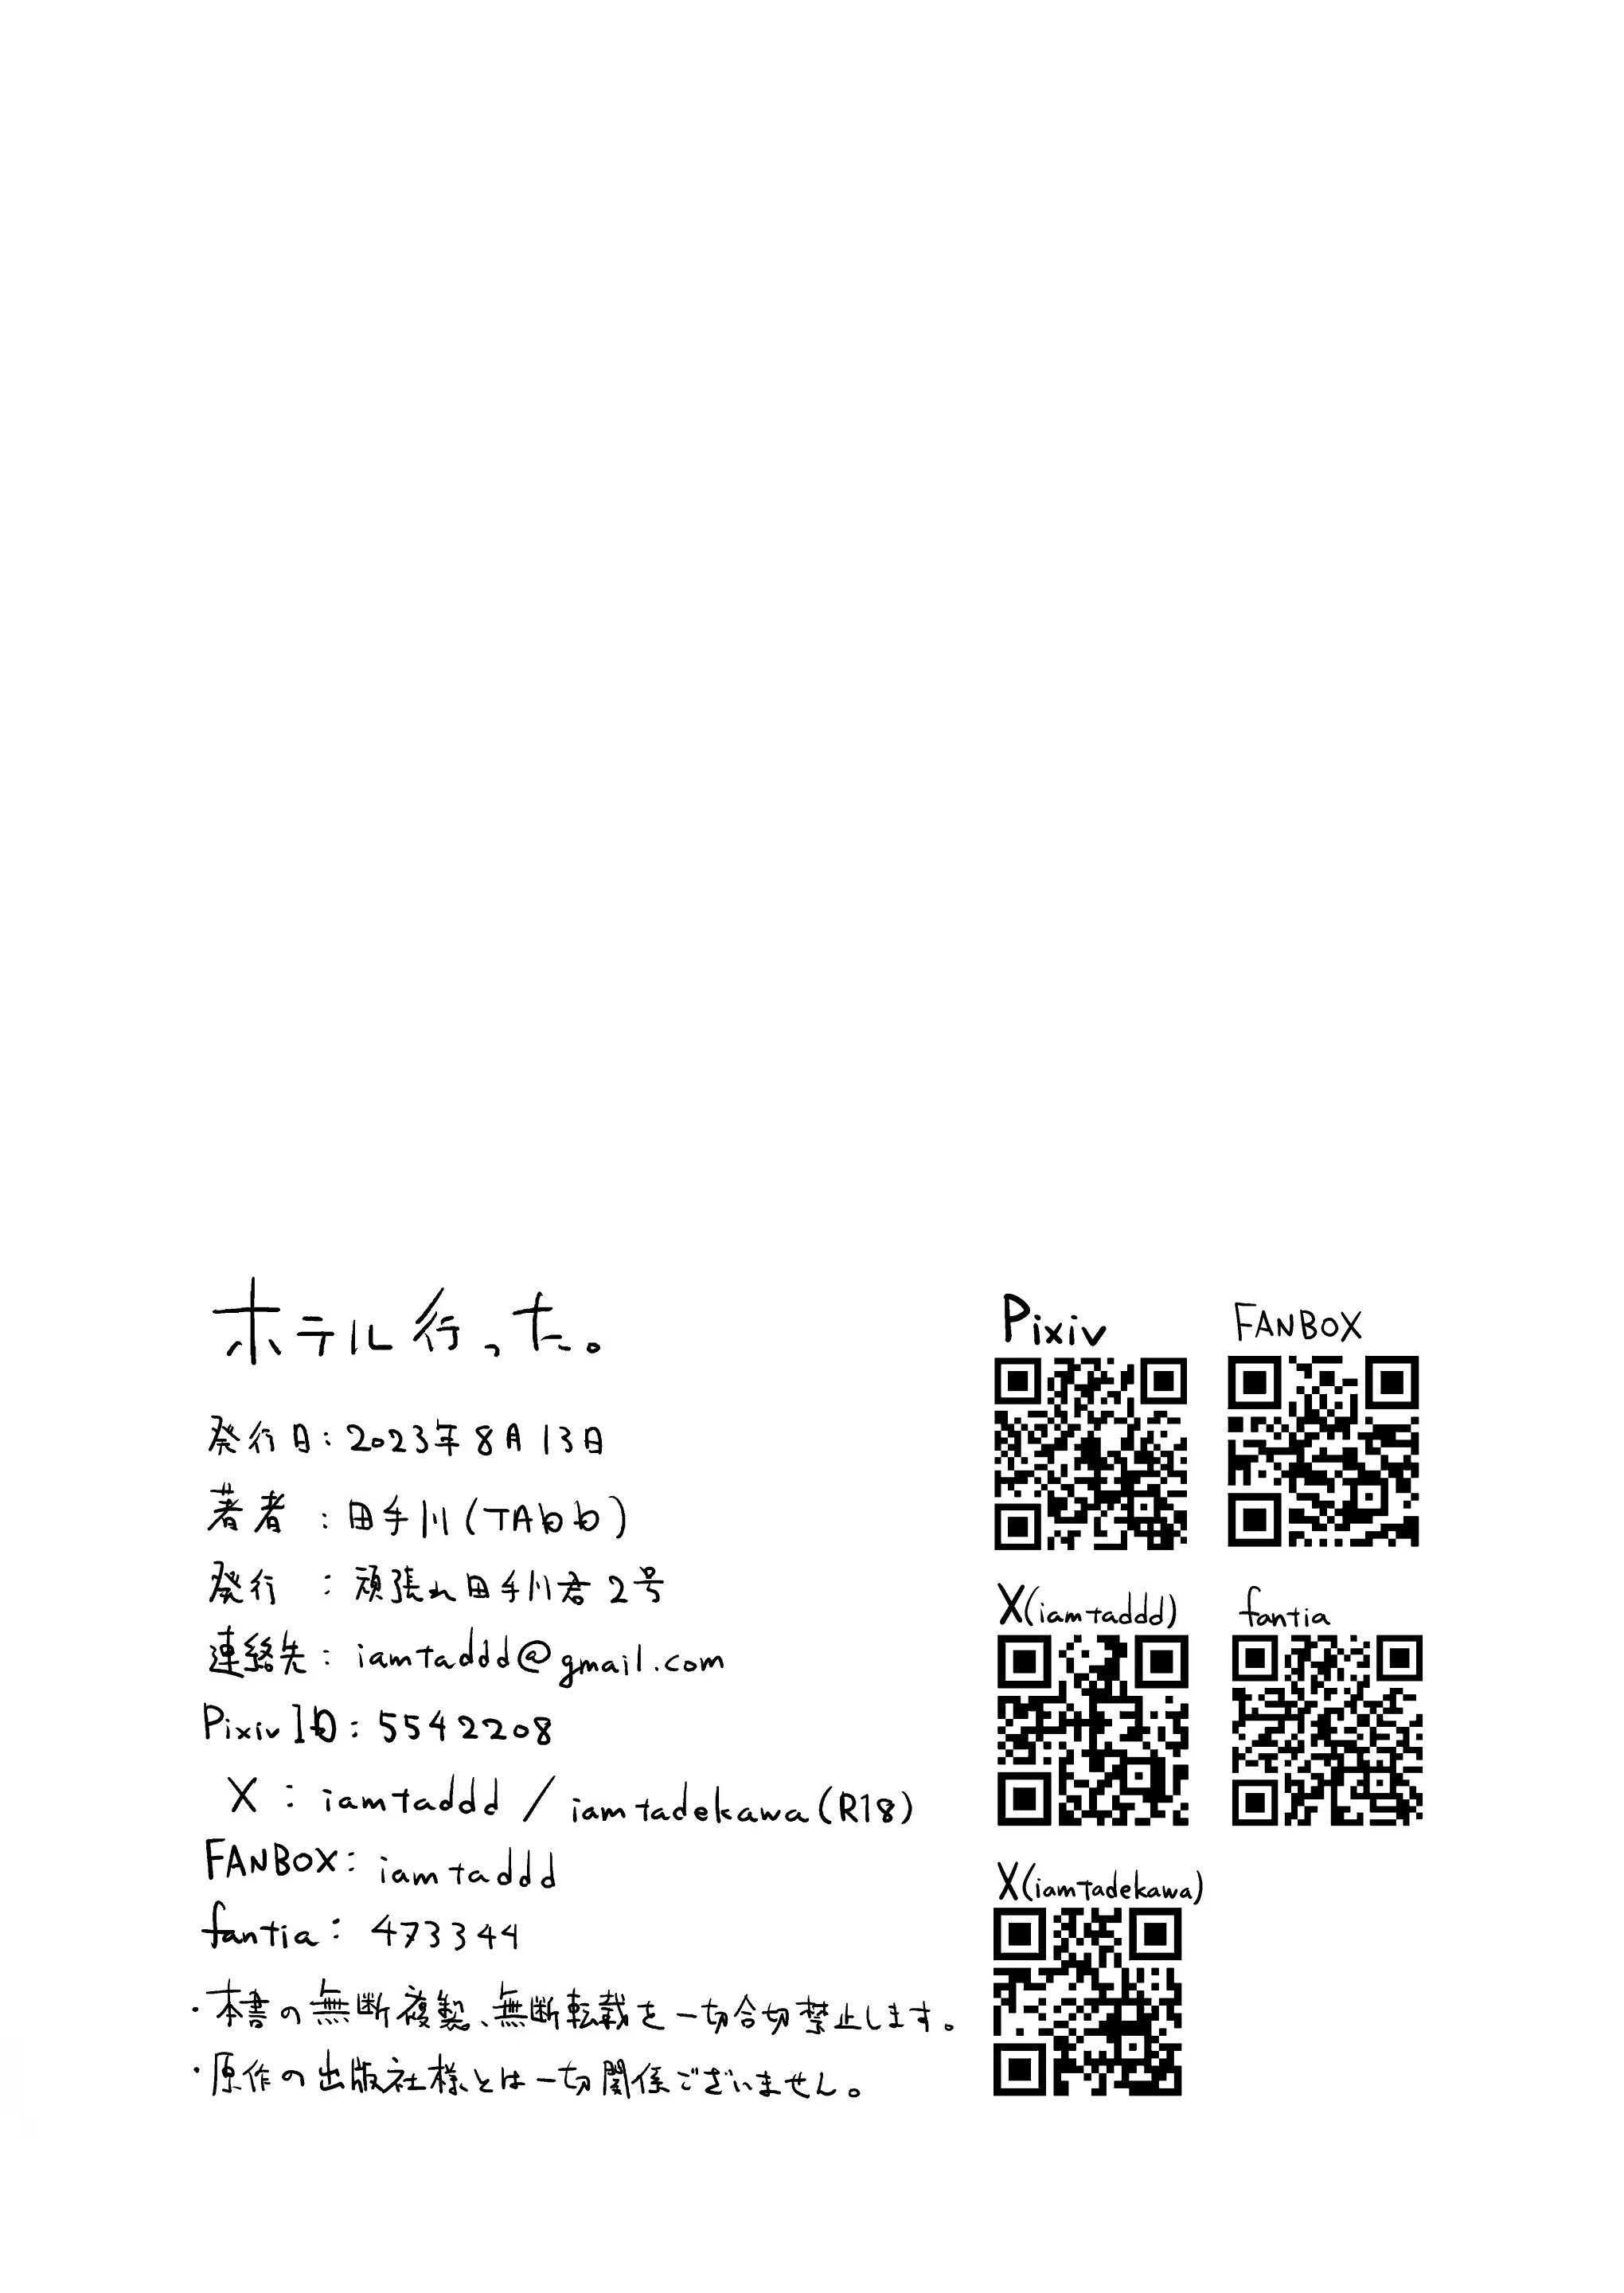 ホテル行った。
発行日:2023年8月13日
著者 :田手川(TADD)
発行 :頑張れ田手川君2号
連絡先:iamtaddd@gmail.com
Pixiv ID:5542208
X:iamtaddd/iamtadekawa(R18)
FANBOX:iamtaddd
fantia:473344
・本書の無断複製、無断転載を一切合切禁止します。
・原作の出版社様とは一切関係ございません。
Pixiv
FANBOX
X(iamtaddd)
fantia
X(iamtadekawa)